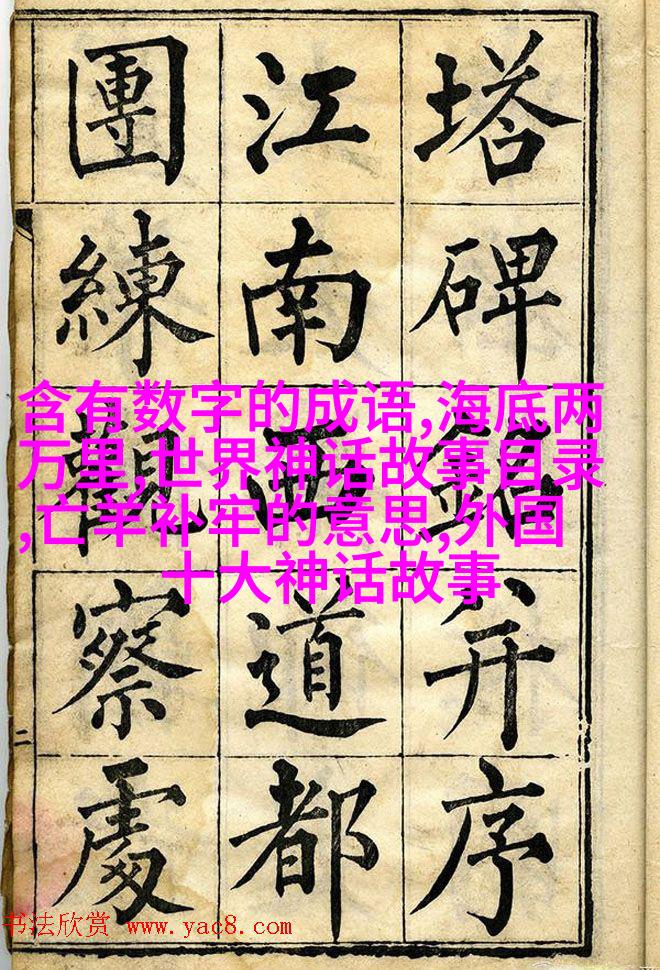 塔碑銘并序
江南西道都
團練觀察處
二
含有数字的成语,海底两
万里,世界神话故事目录
,亡羊补牢的意思,外国
十大神话故事
书法欣赏 www.yac8.com